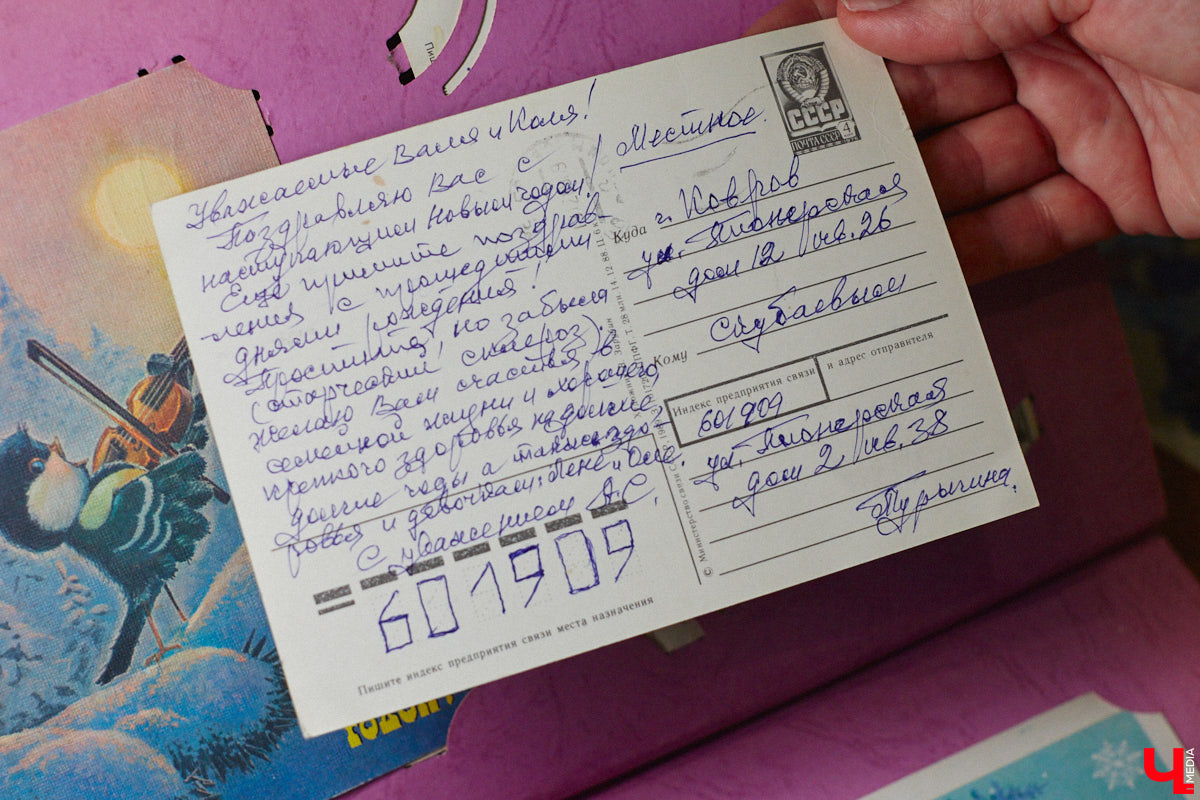 Уважаемые Валя и Коля!
Поздравляю Вас с
наступающим Новым годом!
Ещё примите поздрав-
ления с прошедшими
днями рождения!
Простите, но забыла
(старческий склероз).
Желаю Вам счастья, в
семейной жизни и хорошего,
крепкого здоровья на долгие-
долгие годы а также здо-
ровья и девочкам: Лене и Оле.
С уважением А.С.
601909
Пишите индекс предприятия связи места назначения
Местное.
СССР
ПОЧТА СССР
4
Куда г. Ковров
ул. Пионерская
дом 12 кв. 26
Кому
Индекс предприятия связи и адрес отправителя
601909
ул. Пионерская
дом 2 кв. 38
Турыгина.
© Министерство связи СССР
Ч MEDIA